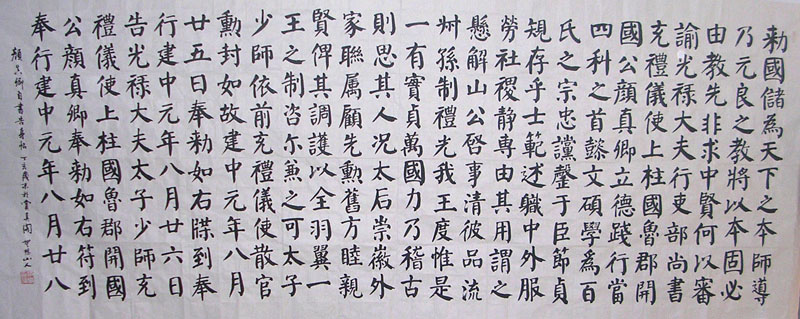 勑國儲為天下之本師導
乃元良之教將以本固必
由教先非求中賢何以審
諭光禄大夫行吏部尚書
充禮儀使上柱國魯郡開
國公顔真卿立德踐行當
四科之首懿文碩學為百
氏之宗忠讜罄于臣節貞
規存乎士範述職中外服
勞社稷静専由其用謂之
懸解山公啓事清彼品流
叔孫制禮光我王度惟是
一有實貞萬國力乃稽古
則思其人况太后崇徽外
家聯属顧先勲舊方睦親
賢俾其調護以全羽翼一
王之制咨尔兼之可太子
少師依前充禮儀使散官
勲封如故建中元年八月
廿五日奉勑如右牒到奉
行建中元年八月廿六日
告光禄大夫太子少師充
禮儀使上柱國魯郡開國
公顔真卿奉勑如右符到
奉行建中元年八月廿八
顔真卿自書告身帖